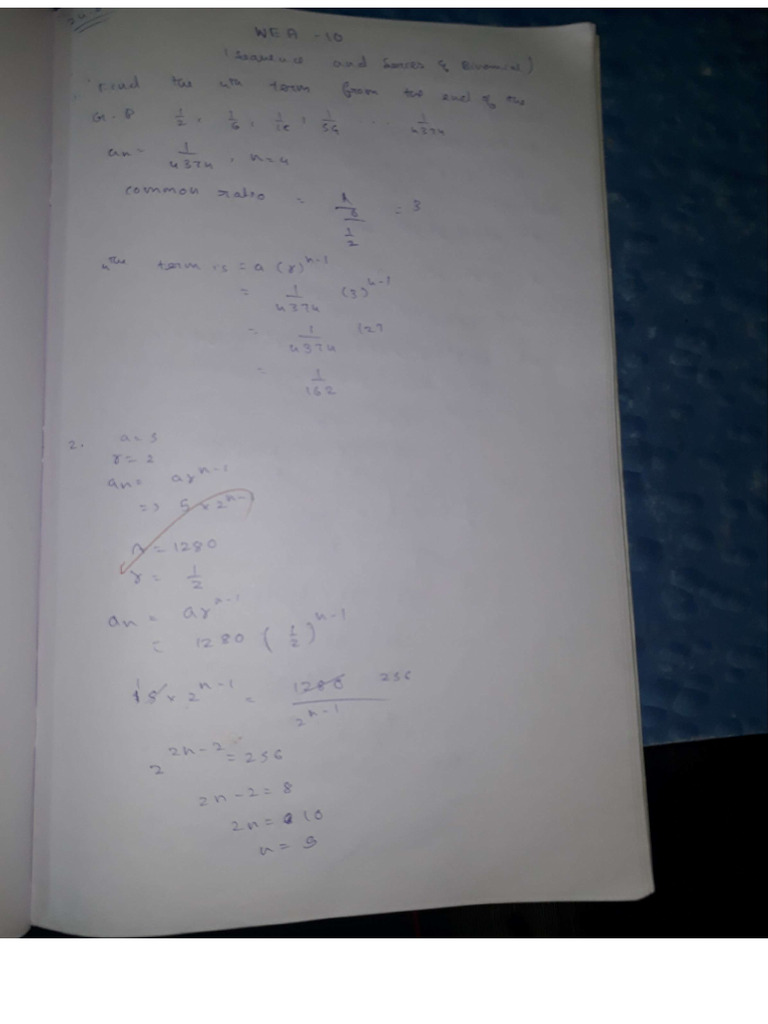 WEA - 10
(Sequence and Series & Binomial)
Find the 4th term from the end of the
G.P 1/2, 1/6, 1/18, 1/54 ... 1/4374
an = 1/4374, n=4
common ratio = (1/6)/(1/2) = 3
4th term is = a (r)^n-1
= 1/4374 (3)^4-1
= 1/4374 (27
= 1/162
2. a = 5
r = 2
an = ar^n-1
=> 5 x 2^n-1
a = 1280
r = 1/2
an = ar^n-1
= 1280 (1/2)^n-1
5 x 2^n-1 = 1280/2^n-1 256
2^2n-2 = 256
2n-2 = 8
2n = 10
n = 5